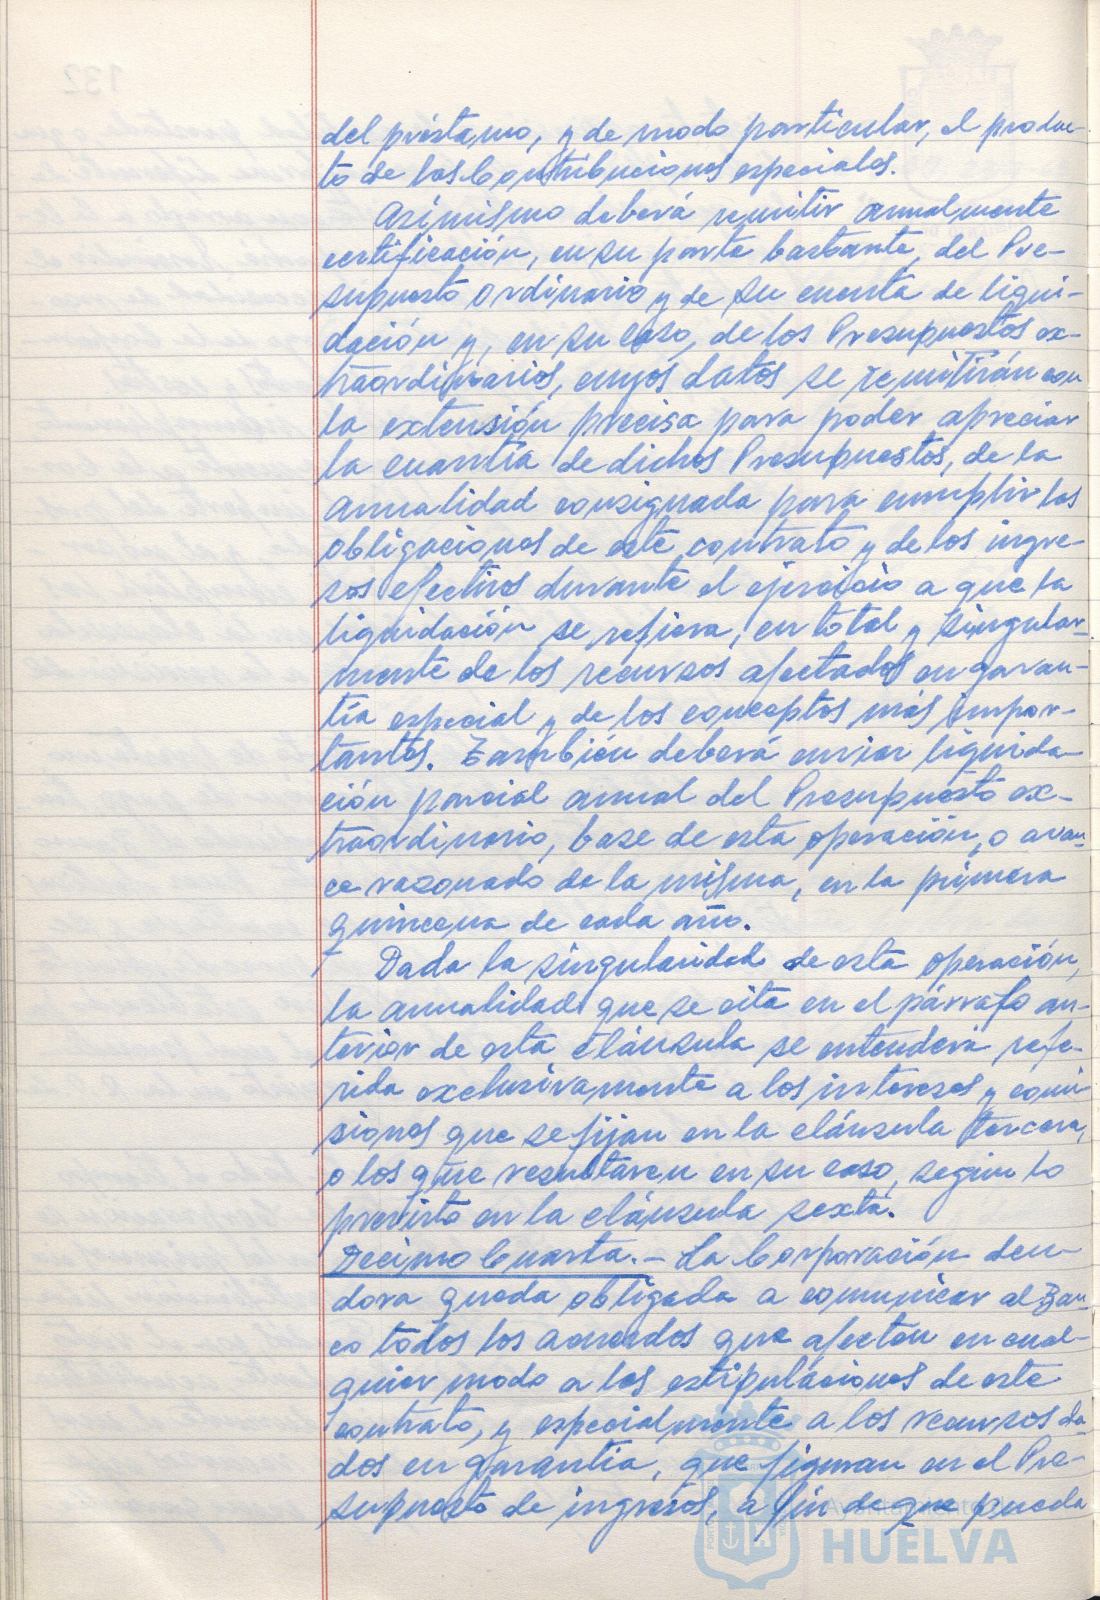 del préstamo, y de modo particular, el produc-
to de las Contribuciones especiales.
Asimismo deberá remitir anualmente
certificación, en su parte bastante, del Pre-
supuesto Ordinario y de su cuenta de liqui-
dación y, en su caso, de los Presupuestos ex-
traordinarios, cuyos datos se remitirán con
la extensión precisa para poder apreciar
la cuantía de dichos Presupuestos, de la
anualidad consignada para cumplir las
obligaciones de este contrato y de los ingre-
sos efectivos durante el ejercicio a que la
liquidación se refiera, en total y singular-
mente de los recursos afectados en garan-
tía especial y de los conceptos más impor-
tantes. También deberá enviar liquida-
ción parcial anual del Presupuesto ex-
traordinario, base de esta operación, o avan-
ce razonado de la misma, en la primera
quincena de cada año.
Dada la singularidad de esta operación,
la anualidad que se cita en el párrafo an-
terior de esta cláusula se entenderá refe-
rida exclusivamente a los intereses y comi-
siones que se fijan en la cláusula tercera,
o los que resultaren en su caso, según lo
previsto en la cláusula sexta.
Decimo Cuarta.- La Corporación deu-
dora queda obligada a comunicar al Ban-
co todos los acuerdos que afecten en cual-
quier modo a las estipulaciones de este
contrato, y especialmente a los recursos da-
dos en garantía, que figuran en el Pre-
supuesto de ingresos, a fin de que pueda
Ayuntamiento de
HUELVA